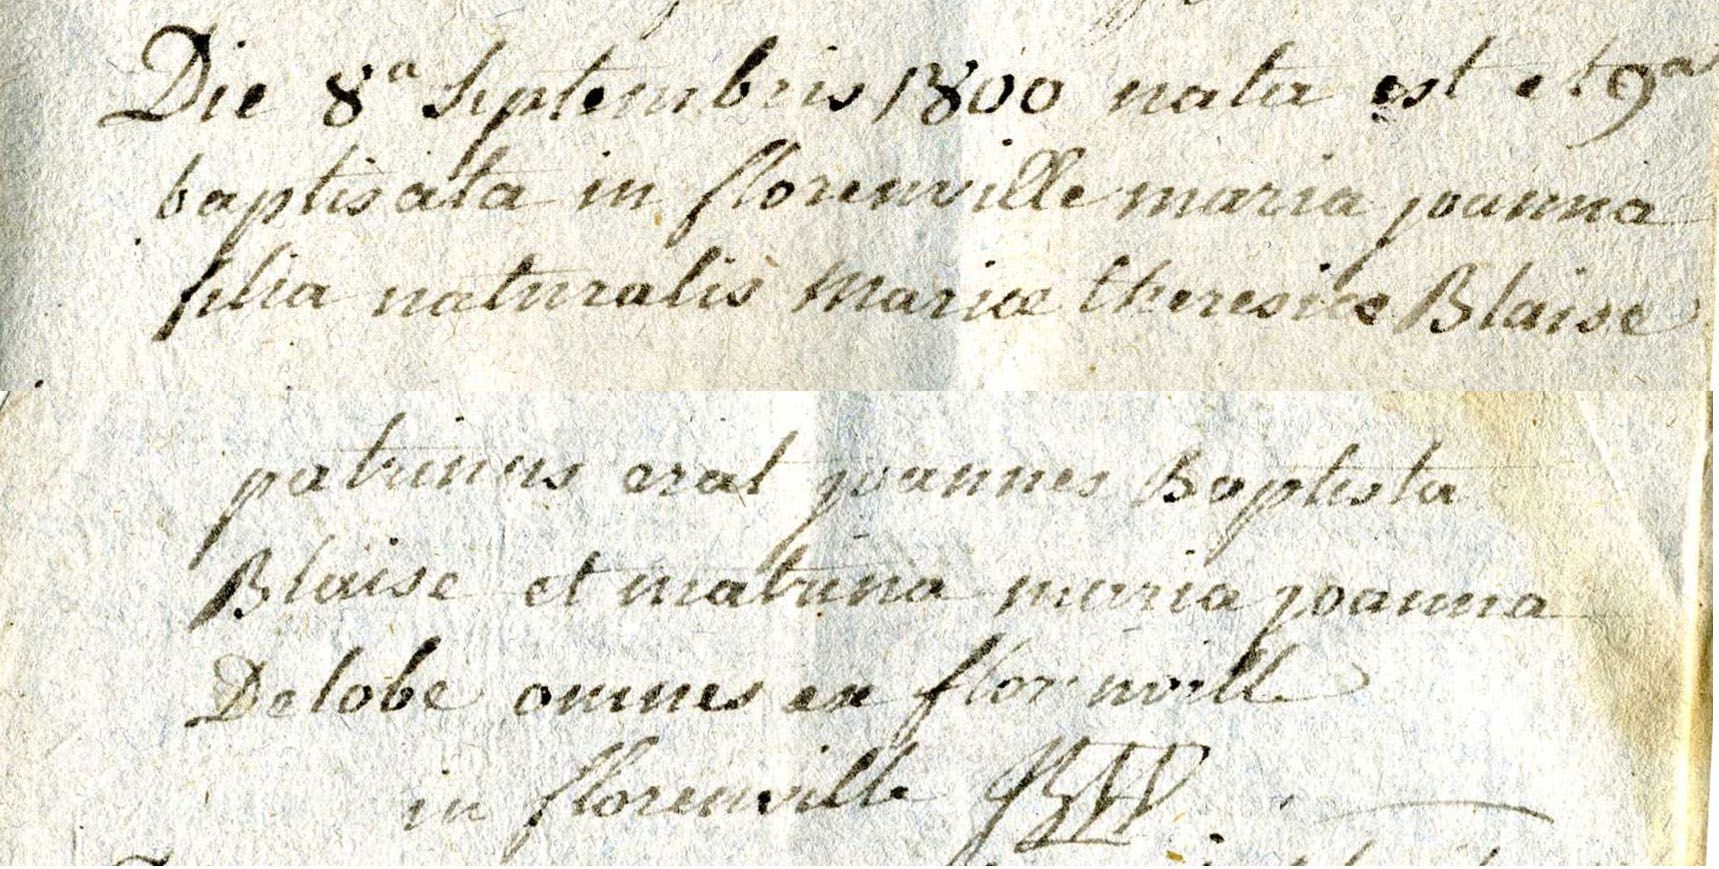 Die 8ª Septembris 1800 nata est et 9ª
baptisata in florenville maria joanna
filia naturalis Mariæ theresiæ Blaise
patrinus erat joannes Baptista
Blaise et matrina maria joanna
Delobe omnes ex florenvill
in florenville